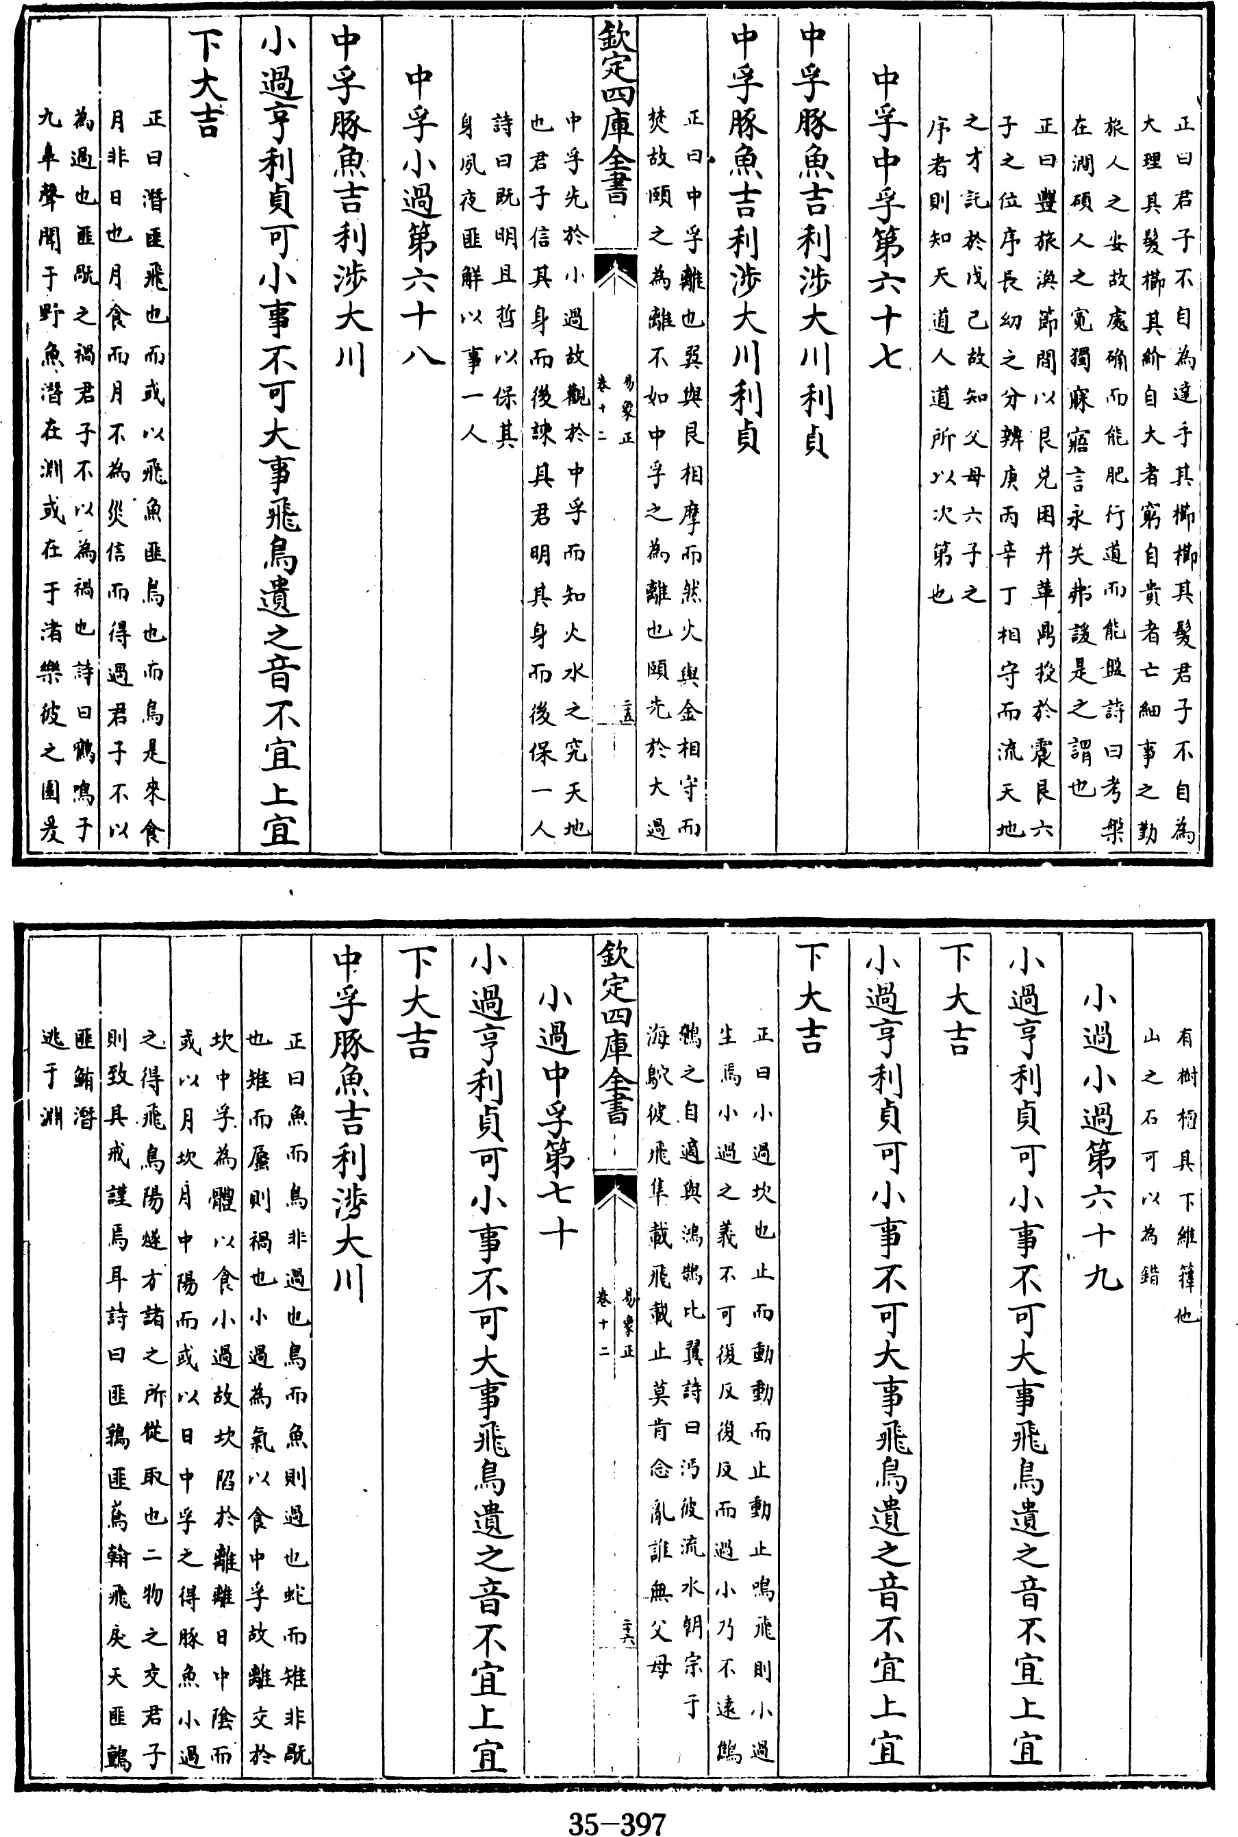 正曰君子不自為達乎其櫛櫛其髮君子不自為
大理其髮櫛其紒自大者窮自貴者亡細事之勤
旅人之安故處确而能肥行道而能盤詩曰考槃
在澗碩人之寛獨寐寤言永矢弗諼是之謂也
正曰豐旅渙節間以艮兑困井革鼎投於震艮六
子之位序長幼之分辨庚丙辛丁相守而流天地
之才託於戊己故知父母六子之
序者則知天道人道所以次第也
中孚中孚第六十七
中孚豚魚吉利涉大川利貞
中孚豚魚吉利涉大川利貞
正曰中孚離也巽與艮相摩而然火與金相守而
焚故頤之為離不如中孚之為離也頤先於大過
欽定四庫全書
易象正
卷十二
二十五
中孚先於小過故觀於中孚而知火水之究天地
也君子信其身而後諫其君明其身而後保一人
詩曰既明且哲以保其
身夙夜匪解以事一人
中孚小過第六十八
中孚豚魚吉利涉大川
小過亨利貞可小事不可大事飛鳥遺之音不宜上宜
下大吉
正曰潛匪飛也而或以飛魚匪鳥也而鳥是來食
月非日也月食而月不為災信而得過君子不以
為過也匪翫之禍君子不以為禍也詩曰鶴鳴于
九臯聲聞于野魚潛在淵或在于渚樂彼之園爰
有樹檀其下維蘀他
山之石可以為錯
小過小過第六十九
小過亨利貞可小事不可大事飛鳥遺之音不宜上宜
下大吉
小過亨利貞可小事不可大事飛鳥遺之音不宜上宜
下大吉
正曰小過坎也止而動動而止動止鳴飛則小過
生焉小過之義不可復反復反而過小乃不遠鷦
鷯之自適與鴻鵠比翼詩曰沔彼流水朝宗于
海鴥彼飛隼載飛載止莫肯念亂誰無父母
欽定四庫全書
易象正
卷十二
二十六
小過中孚第七十
小過亨利貞可小事不可大事飛鳥遺之音不宜上宜
下大吉
中孚豚魚吉利涉大川
正曰魚而鳥非過也鳥而魚則過也蛇而雉非翫
也雉而蜃則禍也小過為氣以食中孚故離交於
坎中孚為體以食小過故坎陷於離離日中陰而
或以月坎月中陽而或以日中孚之得豚魚小過
之得飛鳥陽燧方諸之所從取也二物之交君子
則致其戒謹焉耳詩曰匪鶉匪鳶翰飛戾天匪鸇
匪鮪潛
逃于淵
35-397